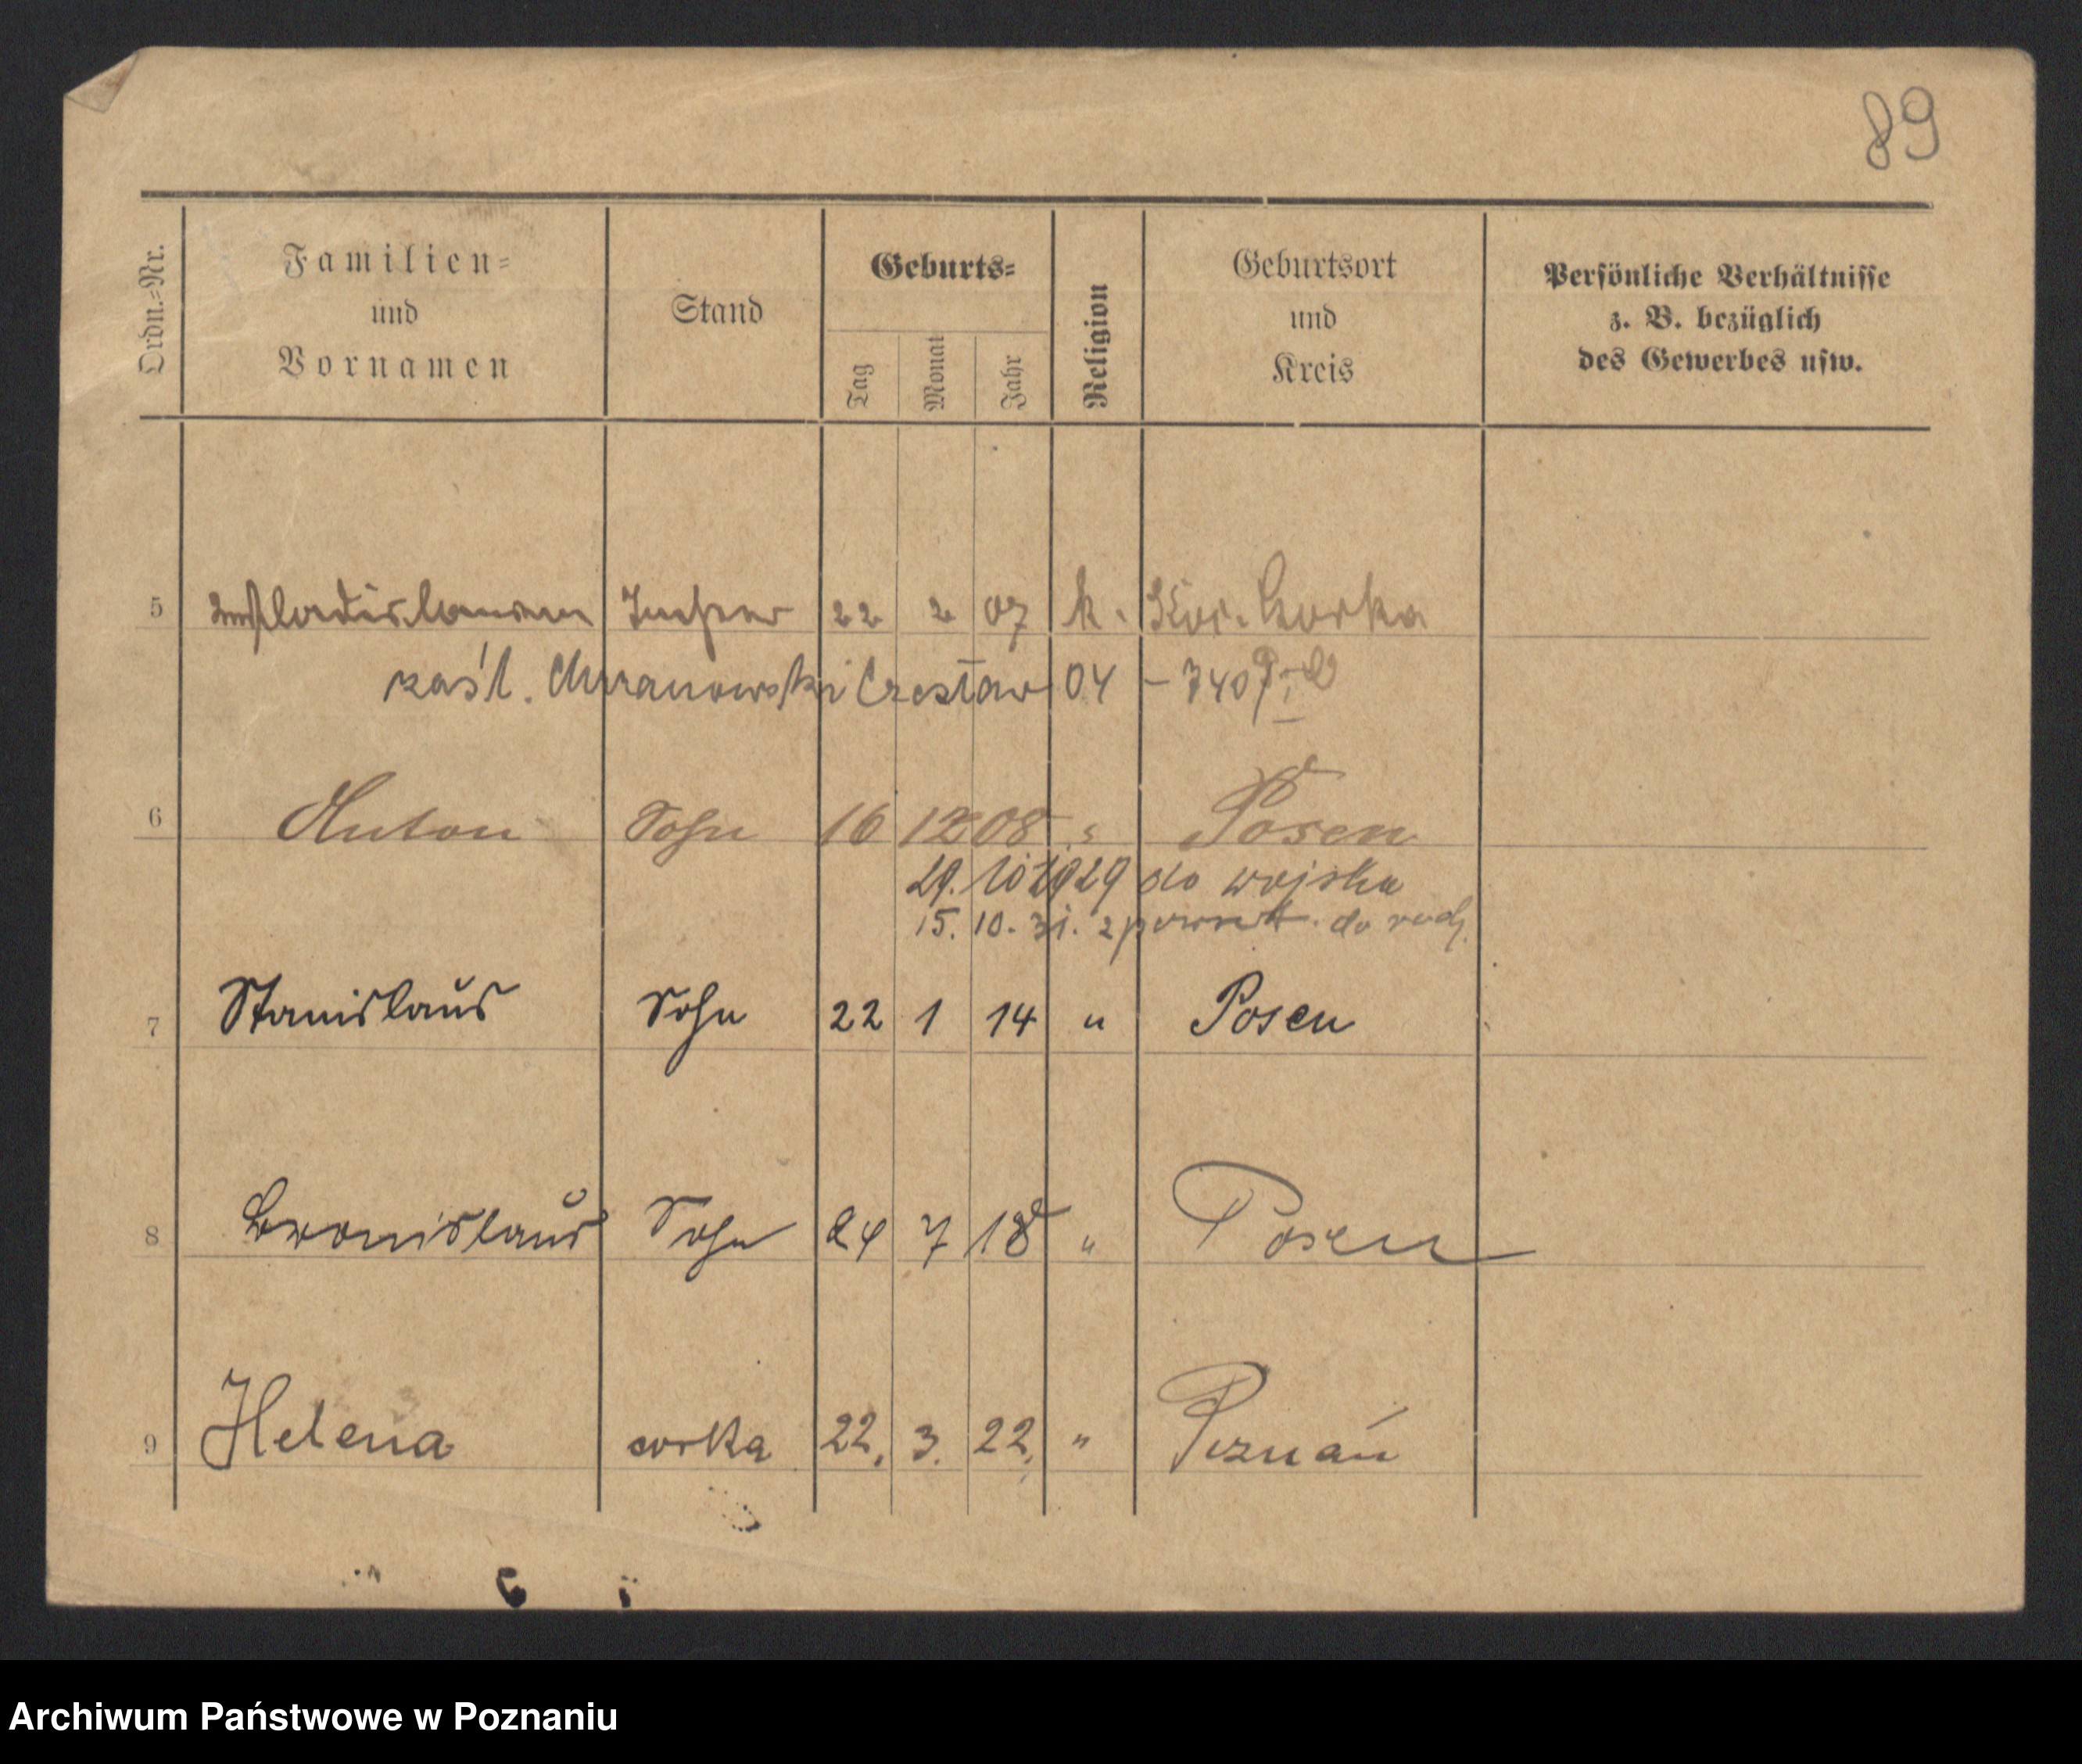 89
Ordn.-Nr. Familien- und Vornamen Stand Geburts- Tag Monat Jahr Religion Geburtsort und Kreis Persönliche Verhältnisse z. B. bezüglich des Gewerbes usw.
5 22 2 07 k. Gorka
zaśl. Czesław 04 – 
6 Anton Sohn 16 12 08 Posen
29. 10 1929 do wojska
15. 10. 31. z do
7 Stanislaus Sohn 22 1 14 " Posen
8 Bronislaus Sohn 24 7 18 " Posen
9 Helena corka 22. 3. 22. " Poznań
Archiwum Państwowe w Poznaniu